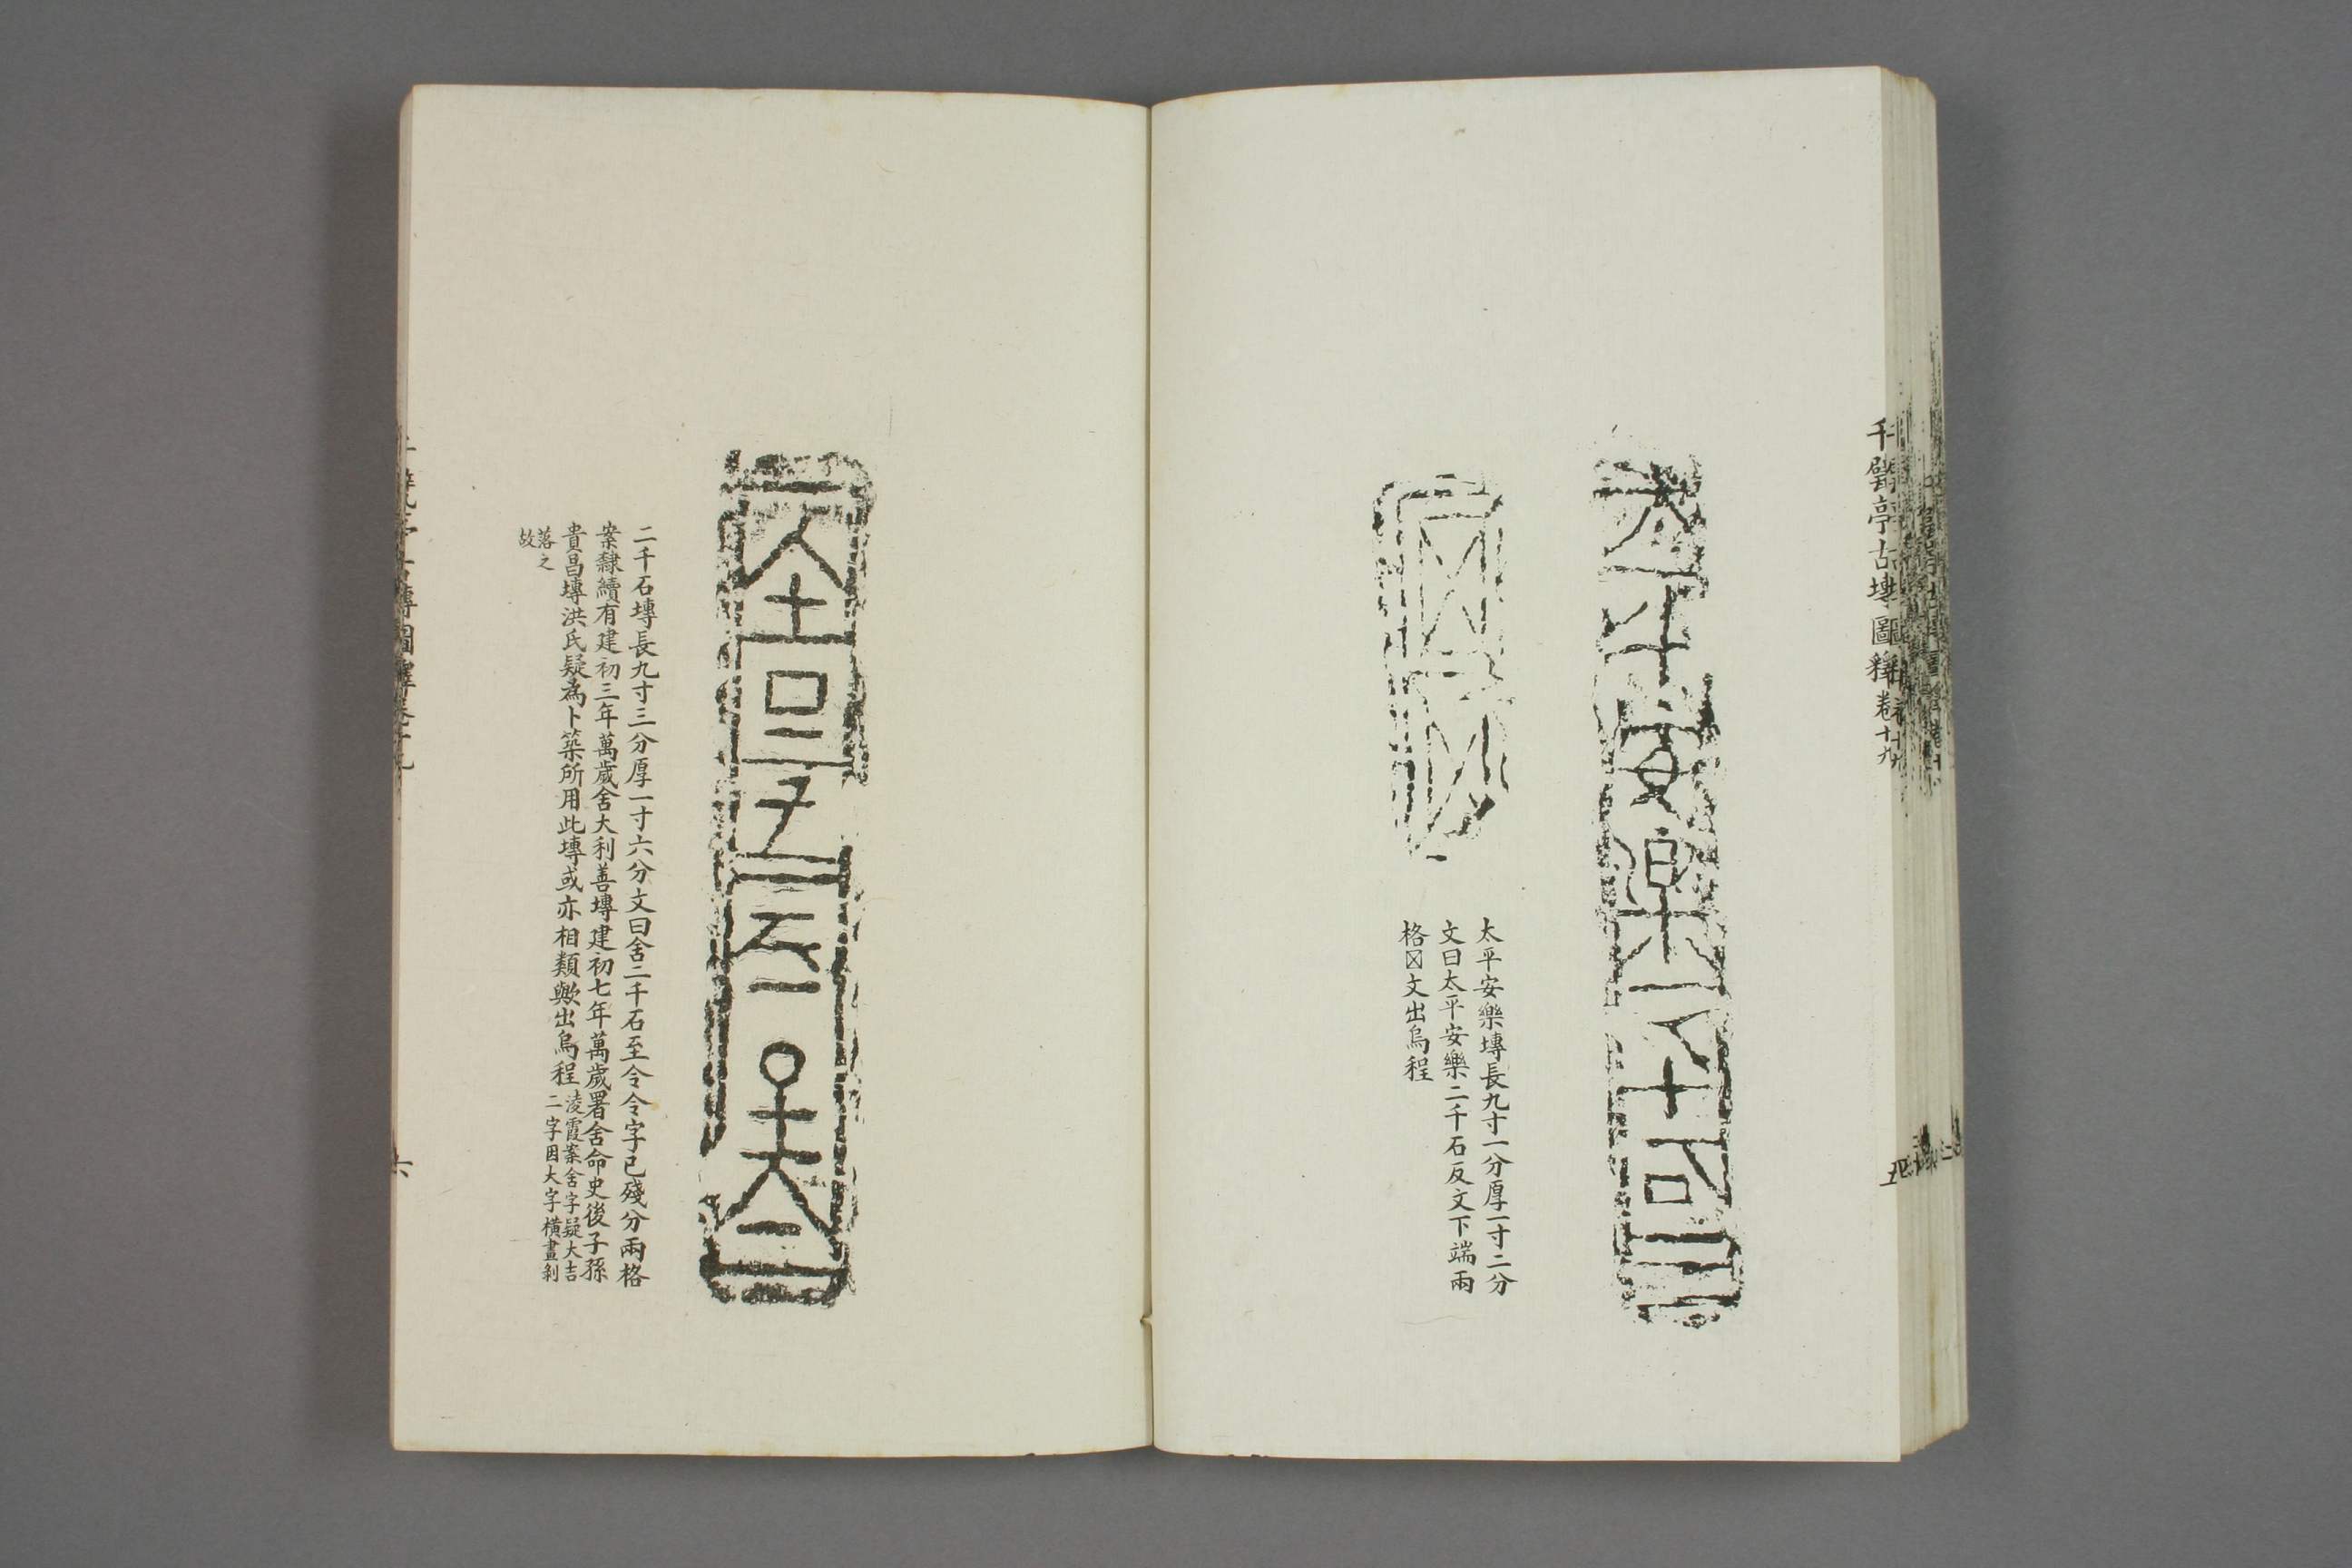 千甓亭古塼圖釋卷十九
五
太平安樂二千石
太平安樂塼長九寸一分厚一寸二分
文曰太平安樂二千石反文下端兩
格㐅文出烏程
二千石塼長九寸三分厚一寸六分文曰舍二千石至令令字已殘分兩格
案隸續有建初三年萬歲舍大利善塼建初七年萬歲署舍命史後子孫
貴昌塼洪氏疑為卜築所用此塼或亦相類歟出烏程
淩霞案舍字疑大吉
二字因大字橫畫剝
落之
故
六